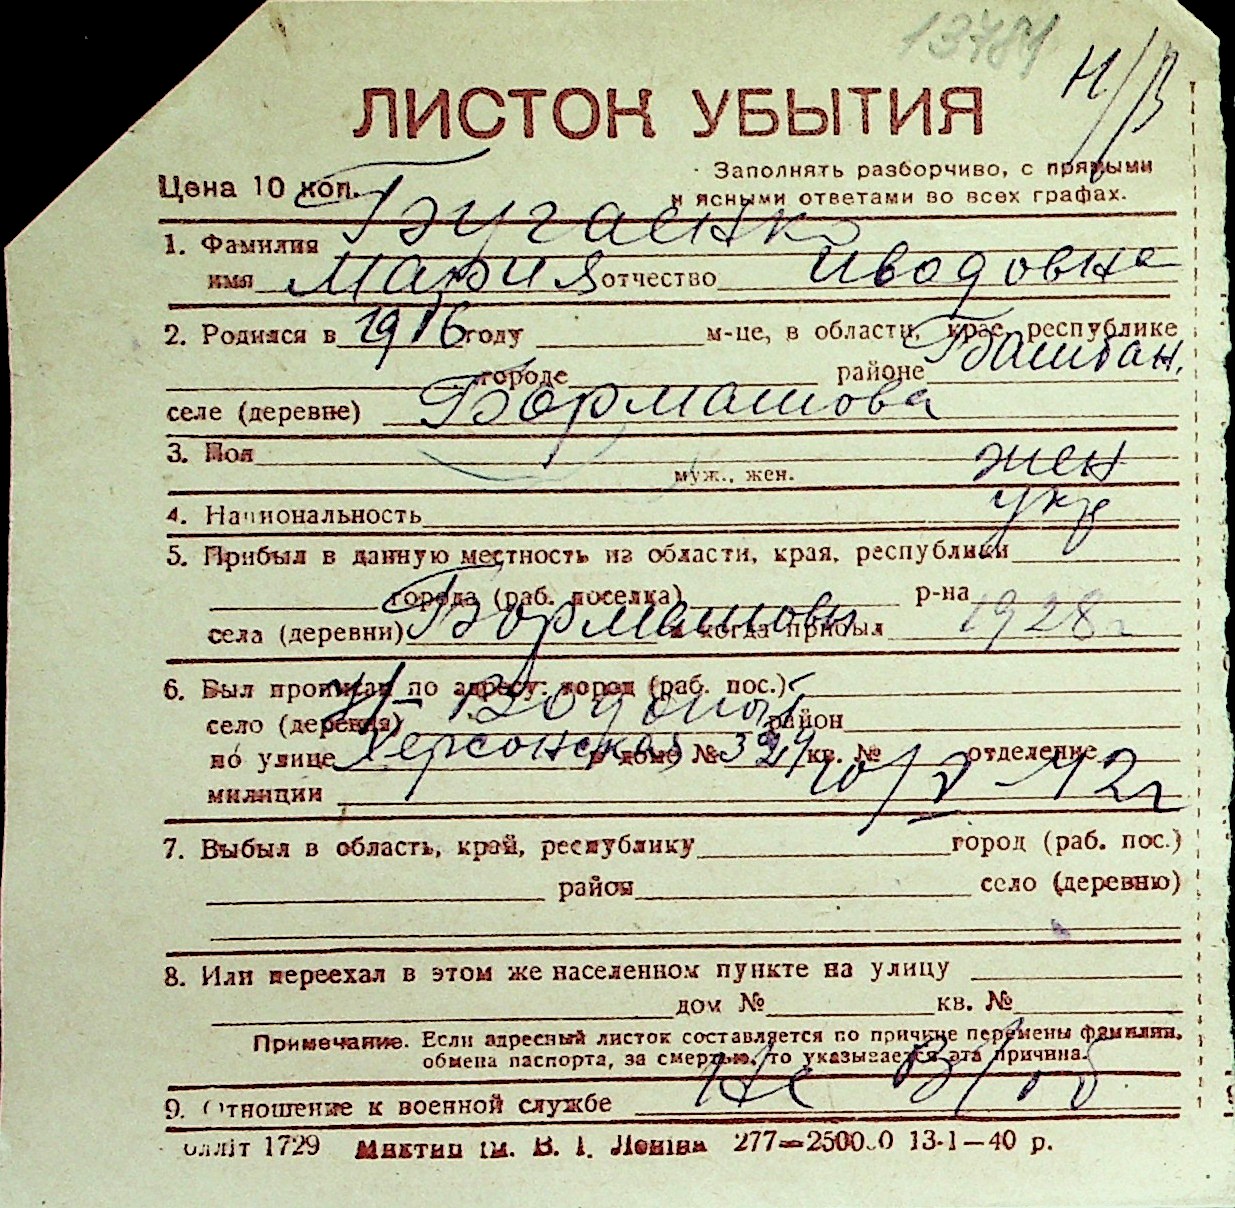 13784
Н/В
ЛИСТОК УБЫТИЯ
Цена 10 коп.
Заполнять разборчиво, с прямыми
и ясными ответами во всех графах.
1. Фамилия Бугаенко
имя Мария отчество
2. Родился в 1916 году м-це, в области, крае, республике
городе районе Баштан.
селе (деревне) Бормашова
3. Пол жен
муж., жен.
4. Национальность укр
5. Прибыл в данную местность из области, края, республики
города (раб. поселка) р-на
села (деревни) Бормашовы и когда прибыл 1928 г
6. Был прописан по адресу: город (раб. пос.)
село (деревня) район
по улице Херсонская в доме № кв. № отделение
милиции
7. Выбыл в область, край, республику город (раб. пос.)
район село (деревню)
8. Или переехал в этом же населенном пункте на улицу
дом № кв. №
Примечание. Если адресный листок составляется по причине перемены фамилии,
обмена паспорта, за смертью, то указывается эта причина.
9. Отношение к военной службе не в/об
олліт 1729 Миктип ім. В. І. Леніна 277—2500.0 13-1—40 р.